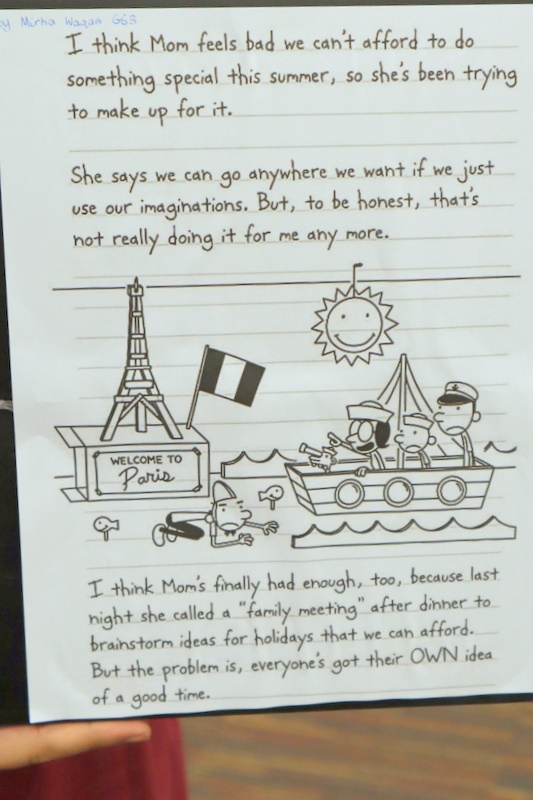 by Mirha Waqan G63
I think Mom feels bad we can't afford to do
something special this summer, so she's been trying
to make up for it.
She says we can go anywhere we want if we just
use our imaginations. But, to be honest, that's
not really doing it for me any more.
WELCOME TO
Paris
I think Mom's finally had enough, too, because last
night she called a "family meeting" after dinner to
brainstorm ideas for holidays that we can afford.
But the problem is, everyone's got their OWN idea
of a good time.